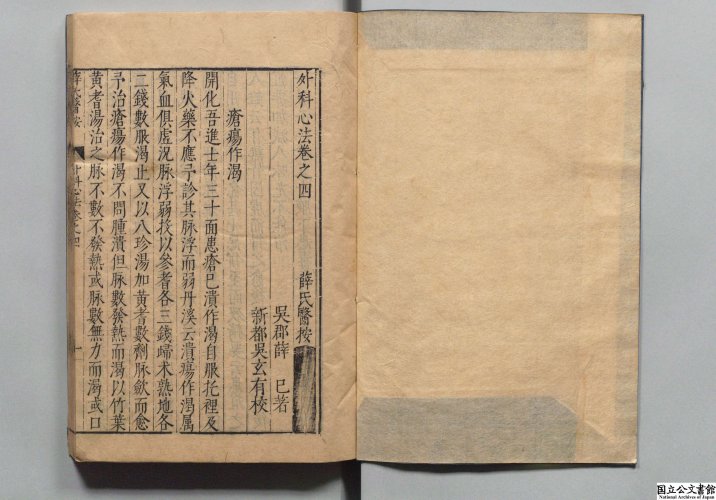 外科心法卷之四
薛氏醫按
吳郡薛 己著
新都吳玄有校
瘡瘍作渴
開化吾進士年三十面患瘡已潰作渴自服托裡及
降火藥不應予診其脉浮而弱丹溪云潰瘍作渴属
氣血俱虛况脉浮弱投以參耆各三錢歸朮熟地各
二錢數服渴止又以八珍湯加黃耆數劑脉歛而愈
予治瘡瘍作渴不問腫潰但脉數發熱而渴以竹葉
黃耆湯治之脉不數不發熱或脉數無力而渴或口
薛氏醫按
外科心法卷之四
一
国立公文書館
National Archives of Japan